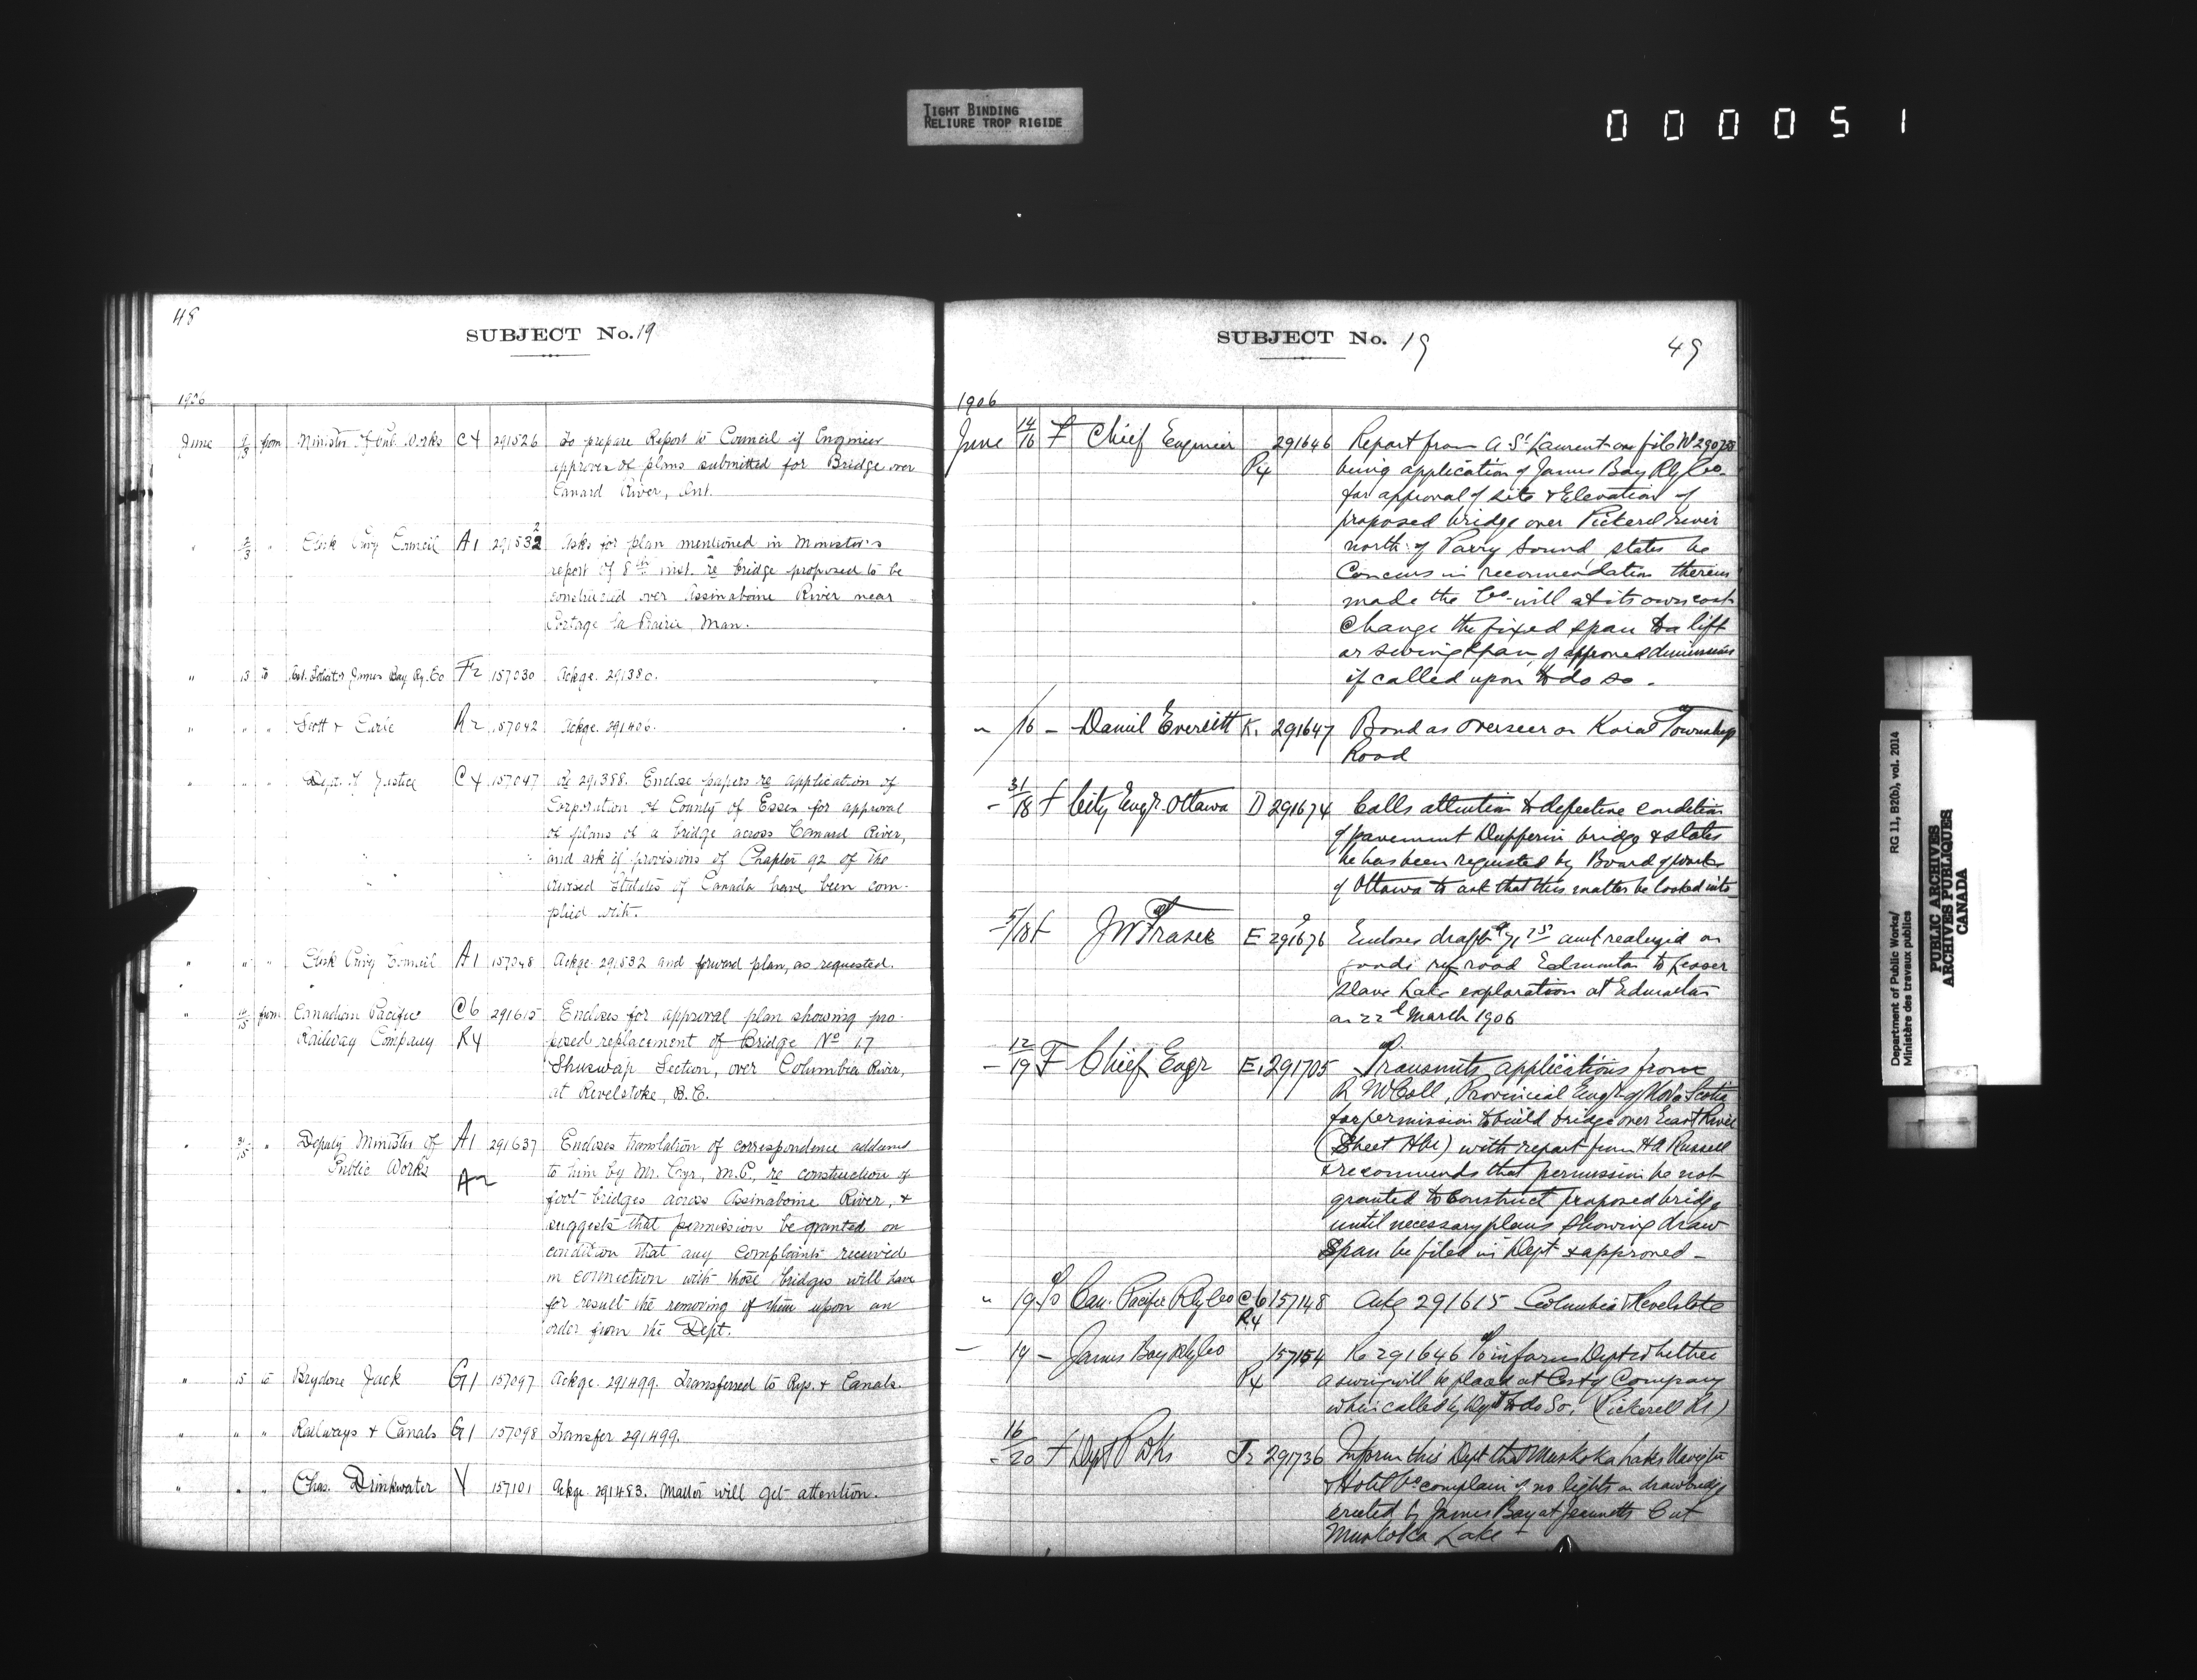 TIGHT BINDING
RELIURE TROP RIGIDE
000051
48
SUBJECT No. 19
1906
June 9/13 from Minister of Pub. Works C4 291526 To prepare Report to Council if Engineer
approves of plans submitted for Bridge over
Canard River, Ont.
" 2/3 " Clerk Privy Council A1 291532 Asks for plan mentioned in Minister's
report of 8th inst. re bridge proposed to be
constructed over Assinaboine River near
Portage la Prairie, Man.
" 13 to Solicitor James Bay Ry. Co F2 157030 Ackge. 291380.
" " " Scott & Curle R2 157042 Ackge. 291406.
" " " Dept. of Justice C4 157047 Re 291388. Enclose papers re application of
Corporation of County of Essex for approval
of plans of a bridge across Canard River,
and ask if provisions of Chapter 92 of the
Revised Statutes of Canada have been com-
plied with.
" " " Clerk Privy Council A1 157048 Ackge. 291532 and forward plan, as requested.
" 15 from Canadian Pacific C6 291615 Encloses for approval plan showing pro-
Railway Company R4 posed replacement of Bridge No 17
Shuswap Section, over Columbia River,
at Revelstoke, B.C.
" 31/15 " Deputy Minister of A1 291637 Encloses translation of correspondence addressed
Public Works A2 to him by Mr. Cyr, M.P., re construction of
foot bridges across Assinaboine River, &
suggests that permission be granted on
condition that any complaints received
in connection with those bridges will have
for result the removing of them upon an
order from the Dept.
" 15 to Brydone Jack G1 157097 Ackge. 291499. Transferred to Rys. & Canals.
" " " Railways & Canals G1 157098 Transfer 291499.
" " " Chas. Drinkwater Y 157101 Ackge. 291483. Matter will get attention.
SUBJECT No. 19
49
1906
June 14/16 F Chief Engineer 291646 Report from A. St Laurent on file No
R4 being application of James Bay Rly Co.
for approval of site & Elevation of
proposed bridge over Pickerel river
north of Parry Sound, states he
Concurs in recommendation therein
made the Co. will at its own cost
Change the fixed span to a lift
or swing span, of approved dimensions
if called upon to do so.
" 16 - Daniel Everett K. 291647 Bond as Overseer on Township
Road
- 31/18 f City Engr. Ottawa D 291674 Calls attention to defective condition
of pavement Dufferin bridge & states
he has been requested by Board of works
of Ottawa to ask that this matter be looked into
- 5/18 f J W Fraser E 291676 Encloses draft amt realized on
goods road Edmonton to Lesser
Slave Lake exploration at Edmonton
on 22d March 1906
- 12/19 F Chief Engr E1 291705 Transmits applications from
R McColl, Provincial Engr. of Nova Scotia
for permission to build bridge over East River
(Sheet Hbr) with report from H A Russell
& recommends that permission be not
granted to Construct proposed bridge
until necessary plans showing draw
Span be filed in Dept & approved -
" 19 to Can. Pacific Rly Co C6 157148 Ackg 291615 Columbia Revelstoke
R4
- 19 - James Bay Rly Co 157154 Re 291646 To inform Dept whether
R4 a swing will be placed at Cost of Company
when called by Dept to do So. (Pickerell Rr)
- 16/20 f Dept R 291736 Inform this Dept that Muskoka Lakes
& Hotel Co complain of no lights on drawbridge
erected by James Bay at Cut
Muskoka Lake -
Department of Public Works/ RG 11, B2(b), vol. 2014
Ministère des travaux publics
PUBLIC ARCHIVES
ARCHIVES PUBLIQUES
CANADA